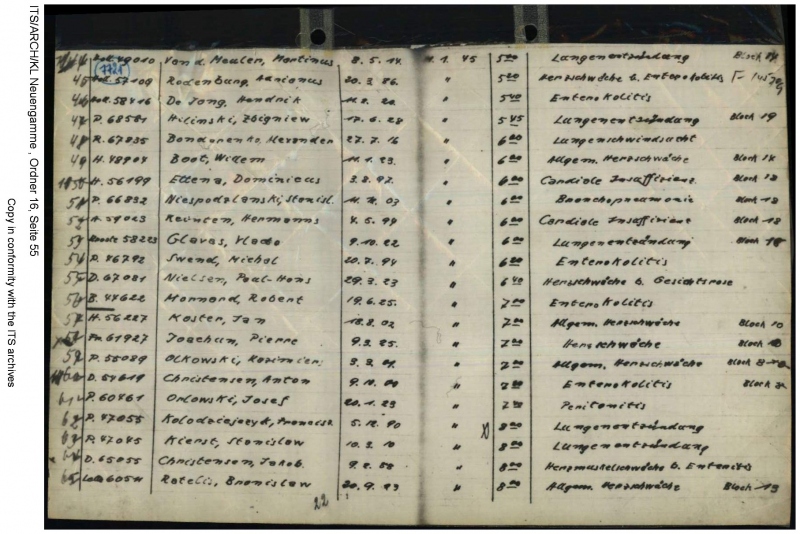 ITS/ARCH/KL Neuengamme , Ordner 16, Seite 55
Copy in conformity with the ITS archives
1725
44 49010 Van d. Meulen, Martinus 8. 5. 14. 11. 1. 45 5 00 Lungenentzündung Block
45 57109 Rodenburg, Adrianus 20. 3. 86. " 5 20 Herzschwäche b. Enterokolitis
46 58416 De Jong, Hendrik " 5 40 Enterokolitis
47 P. 68581 Hilinski, Zbigniew 17. 6. 28 " 5 45 Lungenentzündung Block 19
48 R. 67835 Bondarenko, 27. 7. 16 " 6 00 Lungenschwindsucht
49 H. 48904 Boot, Willem 11. 1. 23. " 6 00 Allgem. Herzschwäche Block 14
50 H. 56199 Ettena, Dominicus 3. 8. 97. " 6 00 Cardiale Insuffizienz Block 18
51 P. 66832 Niespodzianski, Stanisl. 03 " 6 00 Bronchopneumonie Block 18
52 59023 Hermanns 4. 5. 99 " 6 00 Cardiale Insuffizienz Block 18
53 58223 Glavas, Vlado 9. 10. 22 " 6 00 Lungenentzündung Block 18
54 P. 46792 Swend, Michal 20. 7. 94 " 6 00 Enterokolitis
55 D. 67081 Nielsen, Poul-Hans 29. 3. 23 " 6 40 Herzschwäche b. Gesichtsrose
56 B. 44622 Mormand, Robert 19. 6. 25. " 7 00 Enterokolitis
57 H. 56227 Koster, Jan 18. 8. 02 " 7 00 Allgem. Herzschwäche Block 10
58 61927 Joachun, Pierre 9. 3. 25. " 7 00 Herzschwäche Block
59 P. 55089 Olkowski, Kazimierz " 7 00 Allgem. Herzschwäche Block
60 D. 54619 Christensen, Anton 9. 11. 00 " 7 00 Enterokolitis Block
61 P. 60461 Orlowski, Josef 20. 1. 23 " 7 Peritonitis
62 P. 47055 Kolodziejczyk, Francisz. 5. 12. 90 " 8 00 Lungenentzündung
63 P. 47045 Kierst, Stanislaw 10. 3. 10 " 8 00 Lungenentzündung
64 D. 65055 Christensen, Jakob. " 8 00 Herzmuskelschwäche b. Enteritis
65 60511 Ratelis, Bronislaw 20. 9. 23 " 8 00 Allgem. Herzschwäche Block 13
22